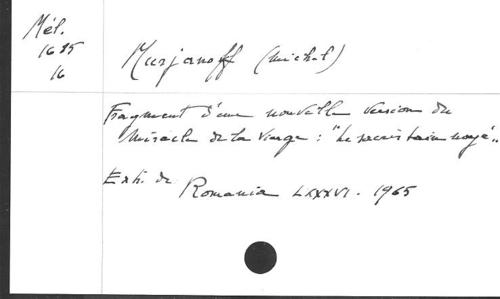 Mél.
1685
16
Murjanoff (Michel)
Fragment d'une nouvelle version du
miracle de la Vierge : "Le sacristain noyé"..
Extr. de Romania LXXXVI. 1965